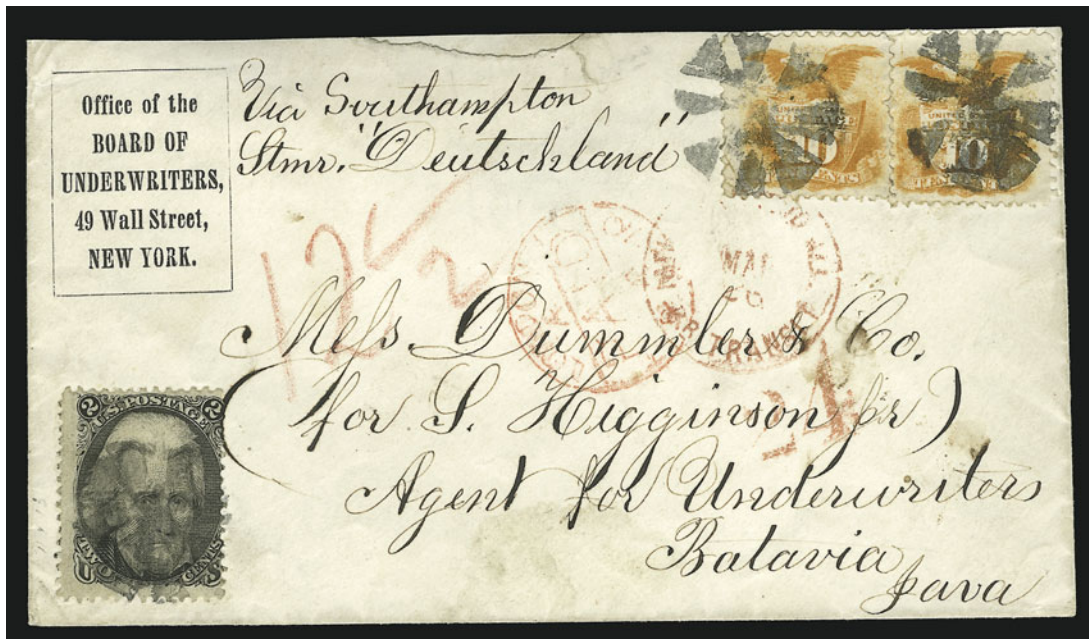 Office of the
BOARD OF
UNDERWRITERS,
49 Wall Street,
NEW YORK.
Via Southampton
Stmr. "Deutschland"
10
TEN CENTS
UNITED STATES
10
TEN CENTS
12
2
PAID
NEW
MAR
TRANSIT
24
Mess. Dummler & Co.
(for S. Higginson Jr)
Agent for Underwriters
Batavia
Java
2 2
U.S. POSTAGE
TWO CENTS
U S